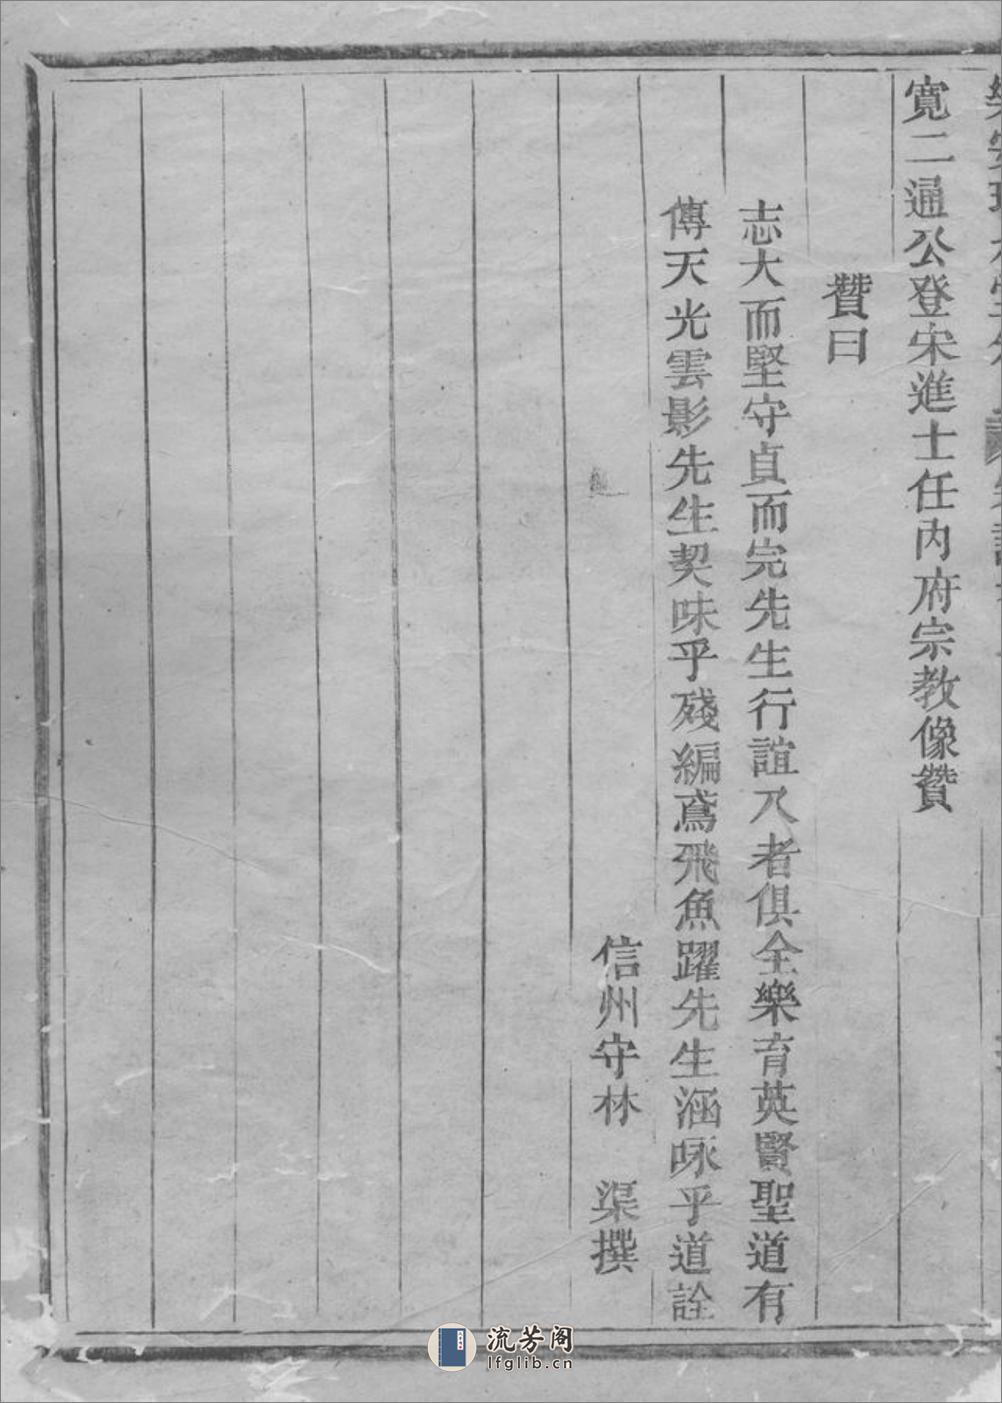 寬二通公登宋進士任內府宗教像贊
贊曰
志大而堅守貞而完先生行誼八者俱全樂育英賢聖道有
傳天光雲影先生契味乎殘編鳶飛魚躍先生涵咏乎道詮
信州守林　渠撰
流芳阁
lfglib.cn